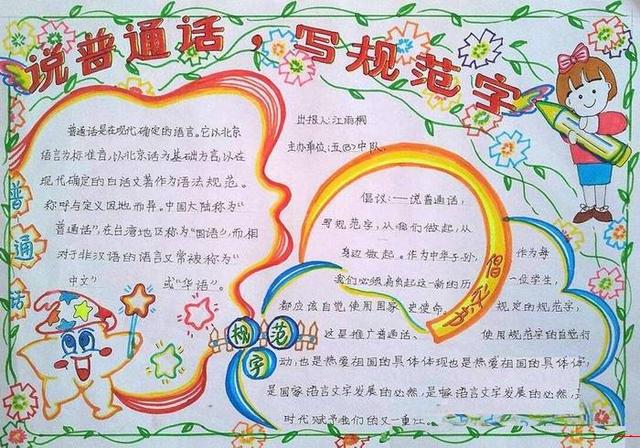 说普通话，写规范字
普通话是在现代确定的语言。它以北京
语言为标准音，以北京话为基础方言，以在
现代确定的白话文著作为语法规范。
称呼与定义因地而异。中国大陆称为“
普通话”，在台湾地区称为“国语”，而相
对于非汉语的语言又常被称为“
中文” 或“华语”。
普通话
出报人：江雨桐
主办单位：五(6)中队
倡议：——说普通话，
写规范字，从我们做起，从
身边做起。作为中华子孙，作为每
我们必须肩负起这一新的历 一位学生，
都应该自觉使用国家 史使命。 规定的规范字，
这是推广普通话、 使用规范字的自觉行
动，也是热爱祖国的具体体现也是热爱祖国的具体体
是国家语言文字发展的必然，是国家语言文字发展的必然，
时代赋予我们的又一重任。
规范字